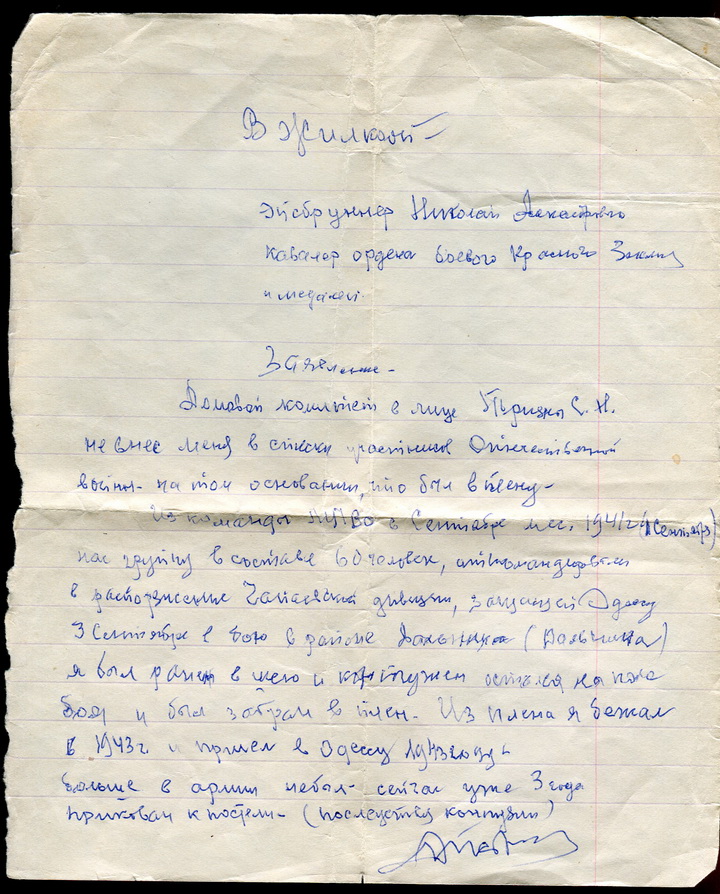 В Жилкой
Эйсбруннер Николай
Кавалер ордена боевого Красного
и медалей.
Заявление
Домовой комитет в лице С. Н.
не внес меня в списки участников Отечественной
войны на том основании, что был в плену
Из команды в Сентябре мес. 1941 г (1 Сентября)
нас группу в составе 60 человек, откомандировали
в распоряжение Чапаевской дивизии, защищ Одессу
3 Сентября в бою в районе Дальника (Дальника)
я был ранен в шею и контужен остался на поле
боя и был забран в плен. Из плена я бежал
в 1943 г. и пришел в Одессу
больше в армии небыл сейчас уже 3 года
прикован к постели (последствия контузии)